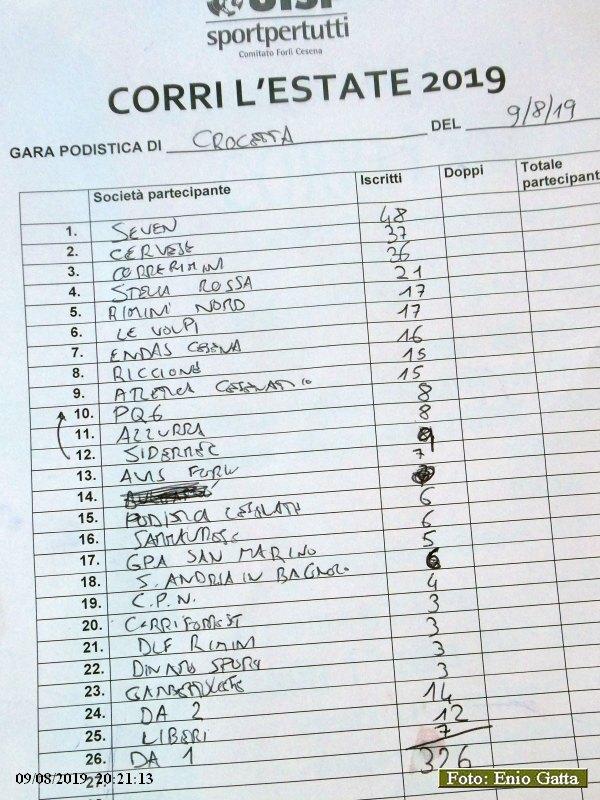 UISP
sportpertutti
Comitato Forlì Cesena
CORRI L'ESTATE 2019
GARA PODISTICA DI CROCETTA DEL 9/8/19
Società partecipante Iscritti Doppi Totale partecipant
1. SEVEN 48
2. CERVESE 37
3. CORRERIMINI 36
4. STELLA ROSSA 21
5. RIMINI NORD 17
6. LE VOLPI 17
7. ENDAS CESENA 16
8. RICCIONE 15
9. ATLETICA CESENATICO 15
10. PQ6 8
11. AZZURRA 8
12. SIDERMEC 9
13. AVIS FORLI 7
14.
15. PODISTICA CESENATE 6
16. SAMMAURESE 6
17. GPA SAN MARINO 5
18. S. ANDREA IN BAGNOLO 6
19. C.P.N. 4
20. CORRIFORREST 3
21. DLF RIMINI 3
22. DINAMO SPORT 3
23. GAMBETTOLESE 3
24. DA 2 14
25. LIBERI 12
26. DA 1 7
27. 326
09/08/2019 20:21:13
Foto: Enio Gatta